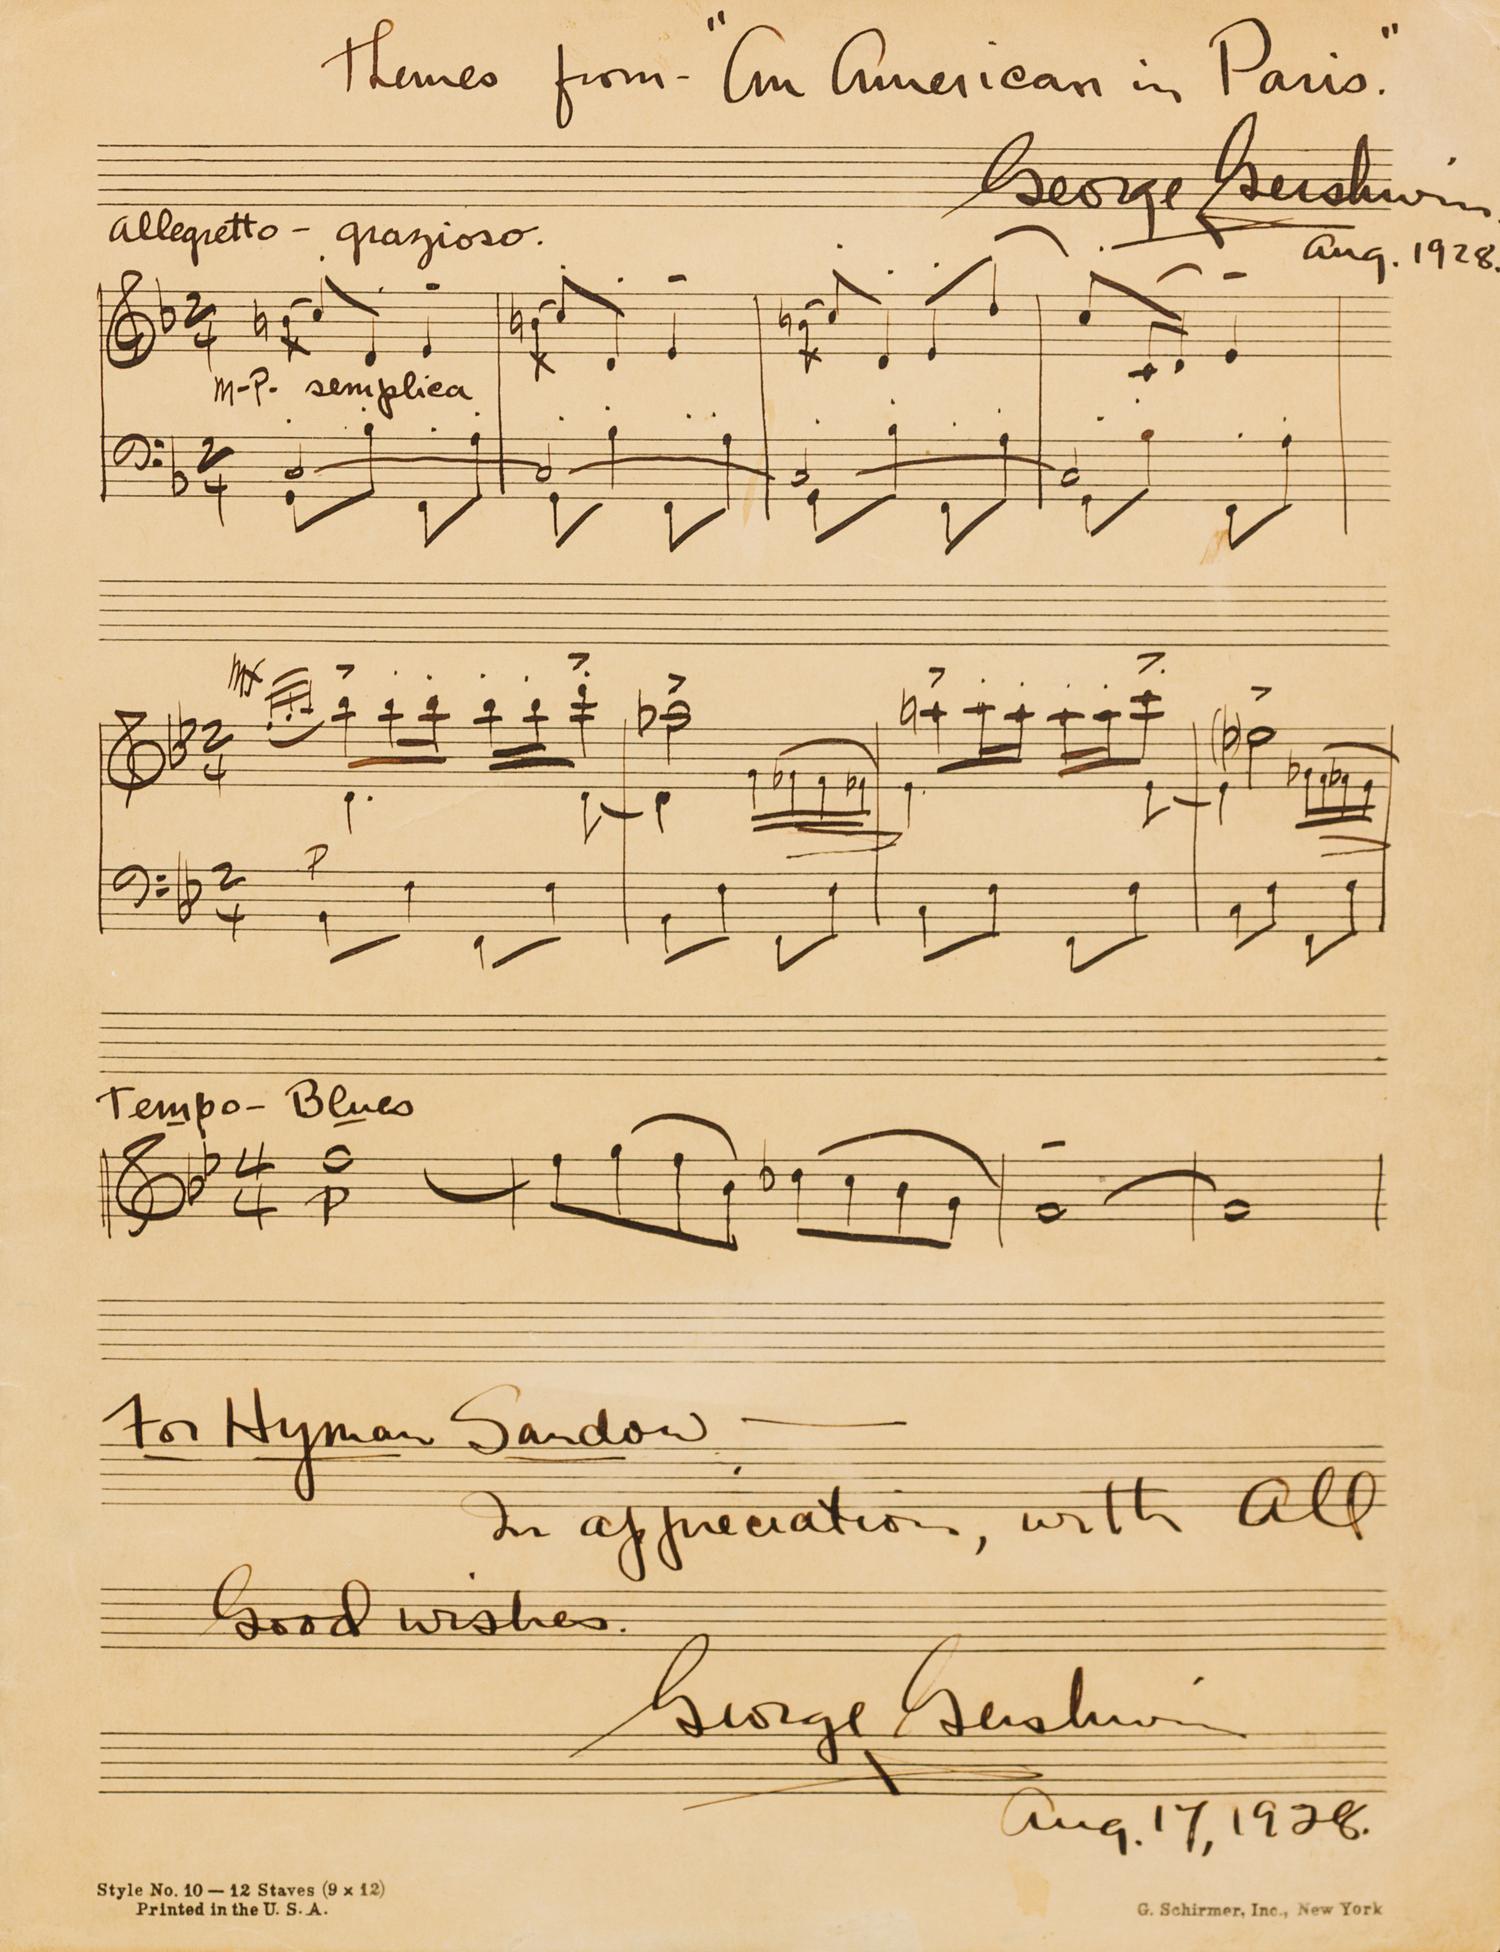 Themes from - "An American in Paris."
George Gershwin.
Aug. 1928.
Allegretto - grazioso.
m-P. semplica
P
Tempo - Blues
P
For Hyman Sandow —
In appreciation, with all
Good wishes.
George Gershwin
Aug. 17, 1928.
Style No. 10 — 12 Staves (9 x 12)
Printed in the U. S. A.
G. Schirmer, Inc., New York